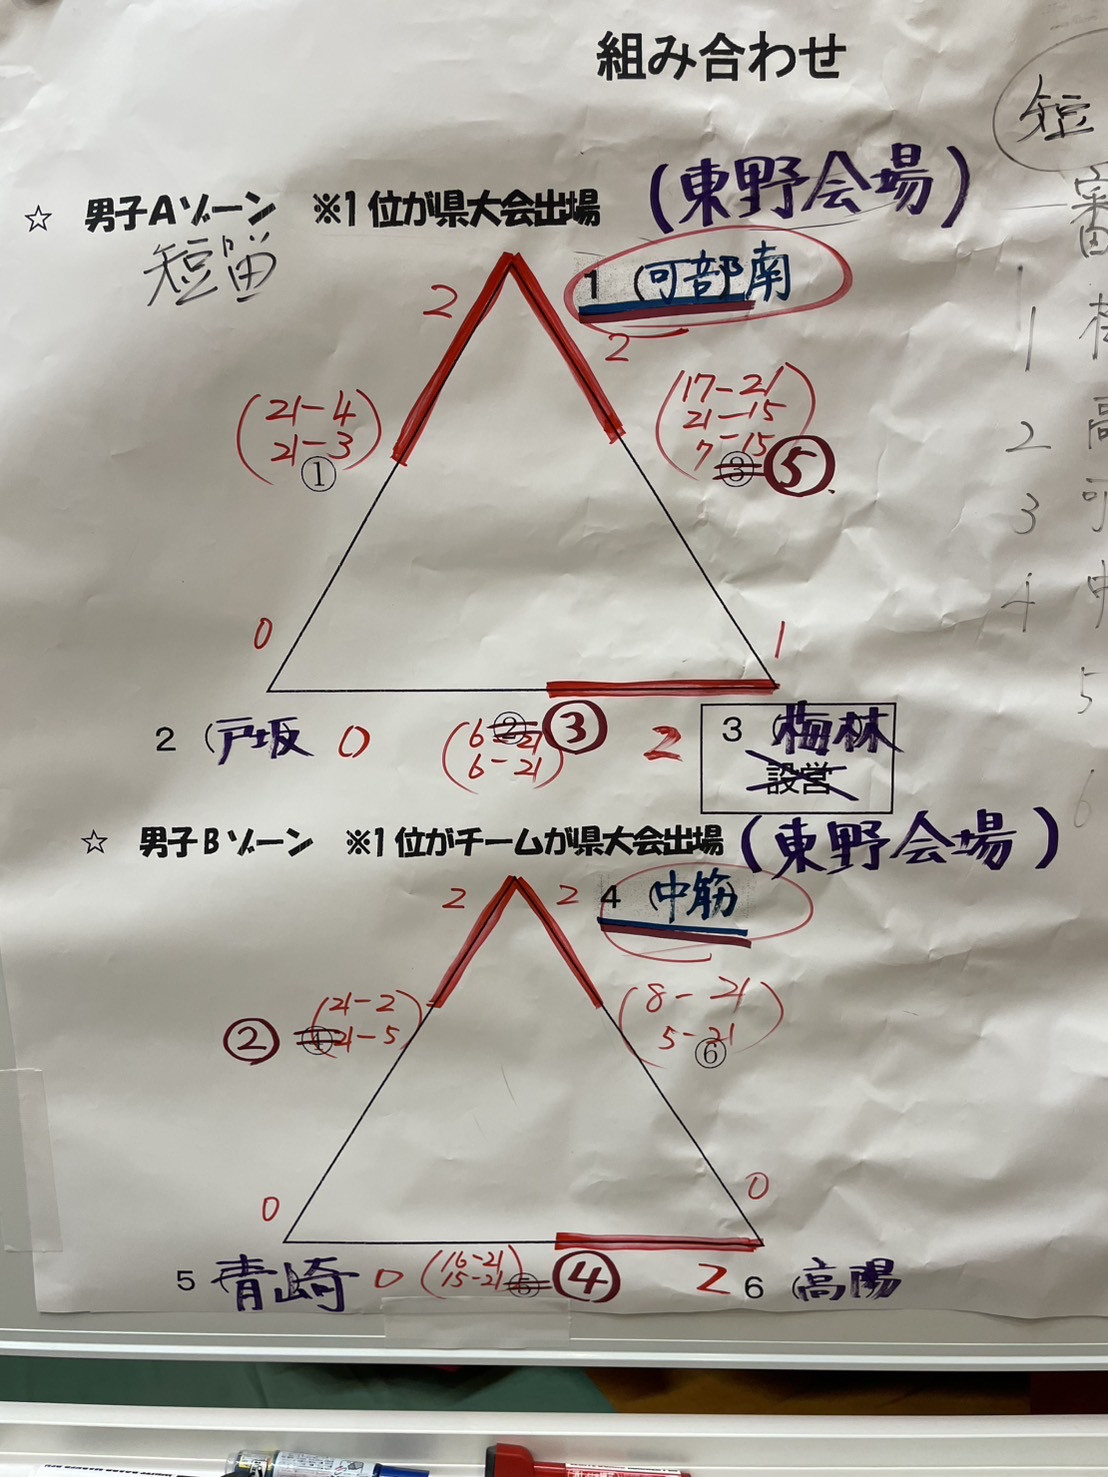 組み合わせ
短
☆ 男子Aゾーン ※1位が県大会出場 (東野会場)
1 (可部南
2
2
(21-4
21-3)
①
(17-21
21-15
7-15)
③ ⑤
0
1
2 (戸坂 0
(6-21
6-21)
② ③
2
3 梅林
設営
☆ 男子Bゾーン ※1位がチームが県大会出場 (東野会場)
4 (中筋)
2
2
(21-2
21-5)
②
(8-21
5-21)
⑥
0
0
5 青崎 0
(16-21
15-21)
⑤ ④
2
6 (高陽
審
1
1
2 高
3 可
4 中
5
6